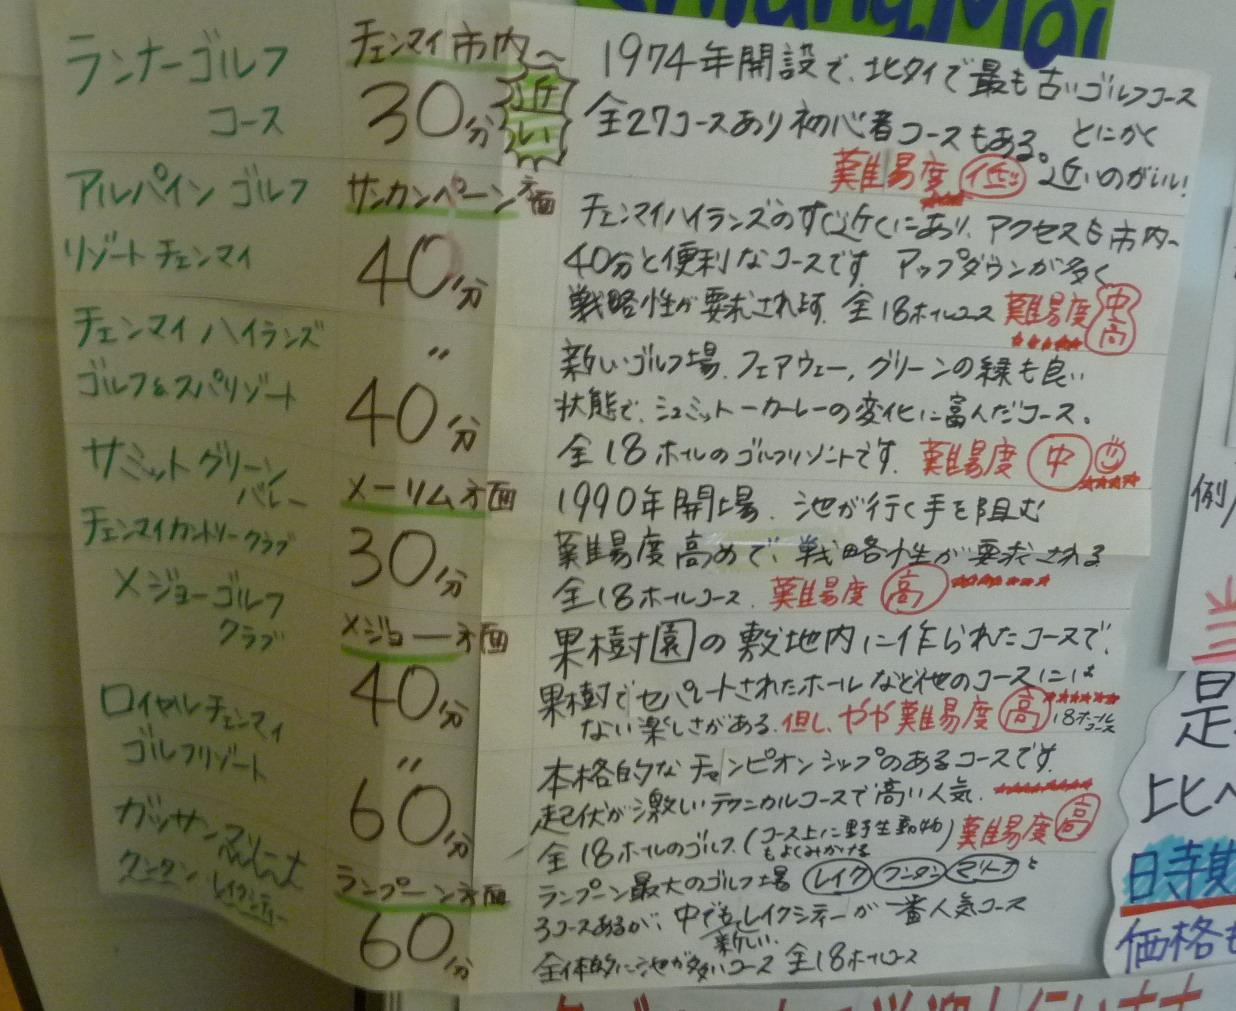 ランナーゴルフ
コース
チェンマイ市内〜
30分
近い
1974年開設で、北タイで最も古いゴルフコース
全27コースあり初心者コースもある。とにかく
難易度 低 近いのがいい!
アルパイン ゴルフ
リゾートチェンマイ
サンカンペーン方面
40分
チェンマイハイランズのすぐ近くにあり、アクセスも市内〜
40分と便利なコースです アップダウンが多く
戦略性が要求されます。全18ホールコース 難易度 中高
チェンマイ ハイランズ
ゴルフ&スパリゾート
〃
40分
新しいゴルフ場、フェアウェー、グリーンの緑も良い
状態で、シュミットーカーレーの変化に富んだコース。
全18ホールのゴルフリゾートです。難易度 中
サミットグリーン
バレー
チェンマイカントリークラブ
メーリム方面
30分
1990年開場、池が行く手を阻む
難易度高めで、戦略性が要求される
全18ホールコース、難易度 高
メジョーゴルフ
クラブ
メジョー方面
40分
果樹園の敷地内に作られたコースで、
果樹でセパレートされたホールなど他のコースには
ない楽しさがある。但し、やや難易度 高 18ホールコース
ロイヤルチェンマイ
ゴルフリゾート
〃
60分
本格的なチャンピオンシップのあるコースです。
起伏が激しいテクニカルコースで高い人気。
全18ホールのゴルフ。(コース上に野生動物もよくみかける) 難易度 高
ガッサン
クンタン、レイクシティー
ランプーン方面
60分
ランプーン最大のゴルフ場 レイク クンタン と
3コースあるが、中でもレイクシティーが一番人気コース
新しい
全体的に池が多いコース 全18ホールコース
例
当
是
比べ
時期
価格も